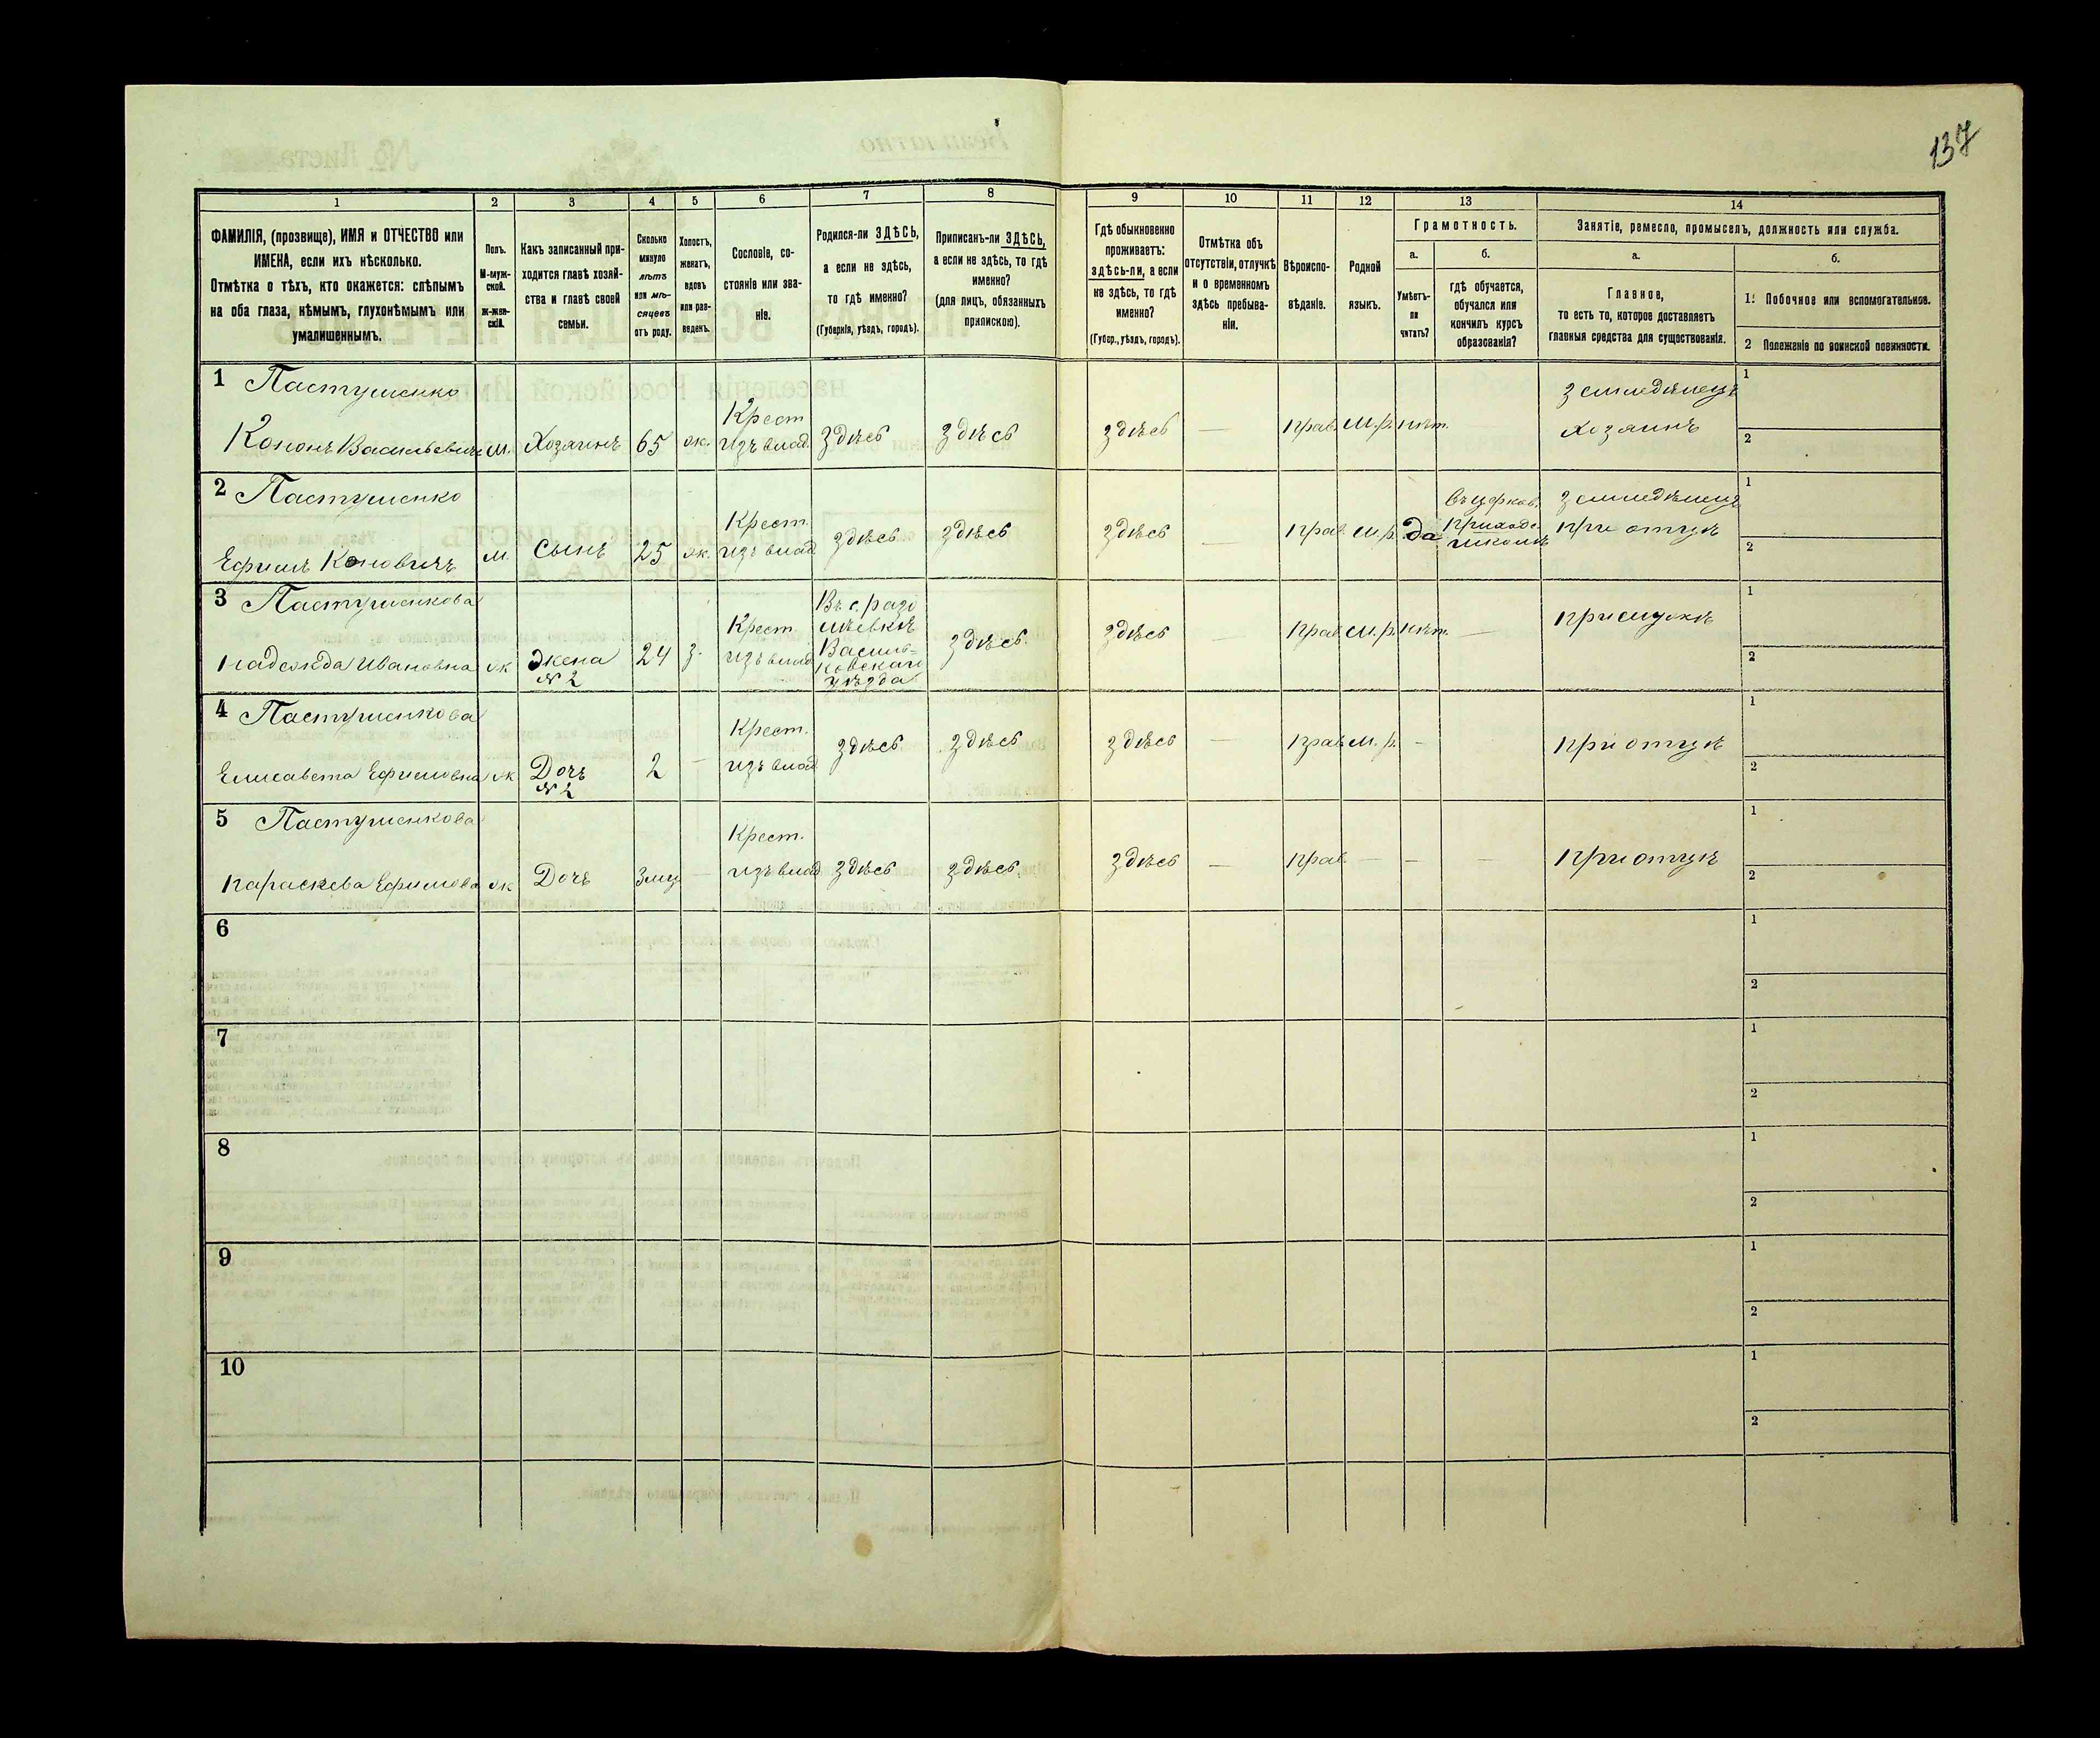 137
1
2
3
4
5
6
7
8
9
10
11
12
13
14
ФАМИЛІЯ, (прозвище), ИМЯ и ОТЧЕСТВО или
ИМЕНА, если ихъ нѣсколько.
Отмѣтка о тѣхъ, кто окажется: слѣпымъ
на оба глаза, нѣмымъ, глухонѣмымъ или
умалишеннымъ.
Полъ.
М-муж-
ской.
Ж-жен-
скій.
Какъ записанный при-
ходится главѣ хозяй-
ства и главѣ своей
семьи.
Сколько
минуло
лѣтъ
или мѣ-
сяцевъ
отъ роду.
Холостъ,
женатъ,
вдовъ
или раз-
веденъ.
Сословіе, со-
стояніе или зва-
ніе.
Родился-ли ЗДѢСЬ,
а если не здѣсь,
то гдѣ именно?
(Губернія, уѣздъ, городъ).
Приписанъ-ли ЗДѢСЬ,
а если не здѣсь, то гдѣ
именно?
(для лицъ, обязанныхъ
припискою).
Гдѣ обыкновенно
проживаетъ:
здѣсь-ли, а если
не здѣсь, то гдѣ
именно?
(Губер., уѣздъ, городъ).
Отмѣтка объ
отсутствіи, отлучкѣ
и о временномъ
здѣсь пребыва-
ніи.
Вѣроиспо-
вѣданіе.
Родной
языкъ.
Грамотность.
а.
Умѣетъ-
ли
читать?
б.
гдѣ обучается,
обучался или
кончилъ курсъ
образованія?
Занятіе, ремесло, промыселъ, должность или служба.
а.
Главное,
то есть то, которое доставляетъ
главныя средства для существованія.
б.
1. Побочное или вспомогательное.
2 Положеніе по воинской повинности.
1 Пастушенко
Кононъ Васильевичъ
м.
Хозяинъ
65
ж.
Крест
изъ влад.
здѣсь
здѣсь
здѣсь
—
прав.
м.р.
нѣт.
земледѣлецъ
хозяинъ
1
2
2 Пастушенко
Ефимъ Кононовичъ
м.
Сынъ
25
ж.
Крест.
изъ влад
здѣсь
здѣсь
здѣсь
—
прав.
м.р.
да
въ церков.
приходс.
школѣ
земледѣлецъ
при отцѣ
1
2
3 Пастушенкова
Надежда Ивановна
ж
Жена
№ 2
24
з.
Крест
изъ влад
Въ с.
Василь=
ковскаго
уѣзда
здѣсь.
здѣсь
—
прав.
м.р.
нѣт.
—
при мужѣ
1
2
4 Пастушенкова
Елисавета Ефимовна
ж
Дочь
№ 2
2
—
Крест.
изъ влад
здѣсь
здѣсь
здѣсь
—
прав.
м.р.
-
при отцѣ
1
2
5 Пастушенкова
Параскева Ефимова
ж
Дочь
3 мц
—
Крест.
изъ влад
здѣсь
здѣсь
здѣсь
—
прав.
—
—
—
при отцѣ
1
2
6
1
2
7
1
2
8
1
2
9
1
2
10
1
2